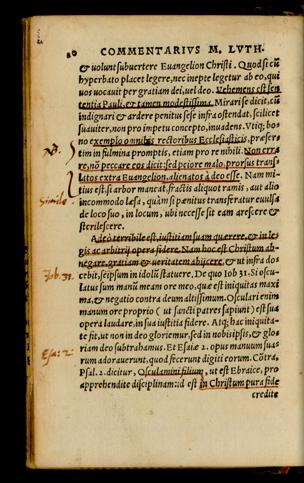 80 COMMENTARIVS M. LVTH.
& volunt subvertere Euangelion Christi. Quod si cũ
hyperbato placet legere, nec inepte legetur ab eo, qui
uos uocauit per gratiam dei, uel deo. Vehemens est sen
tentia Pauli, & tamen modestissima. Mirari se dicit, cũ
indignari & ardere penitus sese infra ostendat, scilicet
suauiter, non pro impetu concepto, inuadens. Vtiq; bo-
no exemplo omnibus rectoribus Ecclesiasticis, præser
tim in fulmina promptis, etiam pro re nihili. Non erra
re, nõ peccare eos dicit: sed peiore malo, prorsus trans
latos extra Euangelion, alienatos à deo esse. Nam mi
tius est si arbor maneat, fractis aliquot ramis, aut alio
incommodo læsa, quàm si penitus transferatur euulsa
de loco suo, in locum, ubi necesse sit eam arescere &
sterilescere.
Adeò terribile est, iustitiam suam quærere, & in le
gis ac arbitrij opera fidere. Nam hoc est Christum ab-
negare, gratiam & ueritatem abijcere, & ut infra do
cebit, seipsum in idolũ statuere. De quo Iob 31. Si oscu-
latus sum manũ meam ore meo. quæ est iniquitas maxi
ma, & negatio contra deum altissimum. Osculari enim
manum ore proprio (ut sancti patres sapiunt) est sua
opera laudare, in sua iustitia fidere. Atq; hac iniquita-
te fit, ut non in deo gloriemur, sed in nobisipsis, & glo-
riam deo subtrahamus. Et Esaiæ 2. opus manuum sua-
rum adorauerunt, quod fecerunt digiti eorum. Cõtra,
Psal. 2. dicitur, Osculamini filium, ut est Ebraice, pro
apprehendite disciplinam: id est in Christum pura fide
credite
NB.
Simile.
Iob. 31.
Esa: 2.